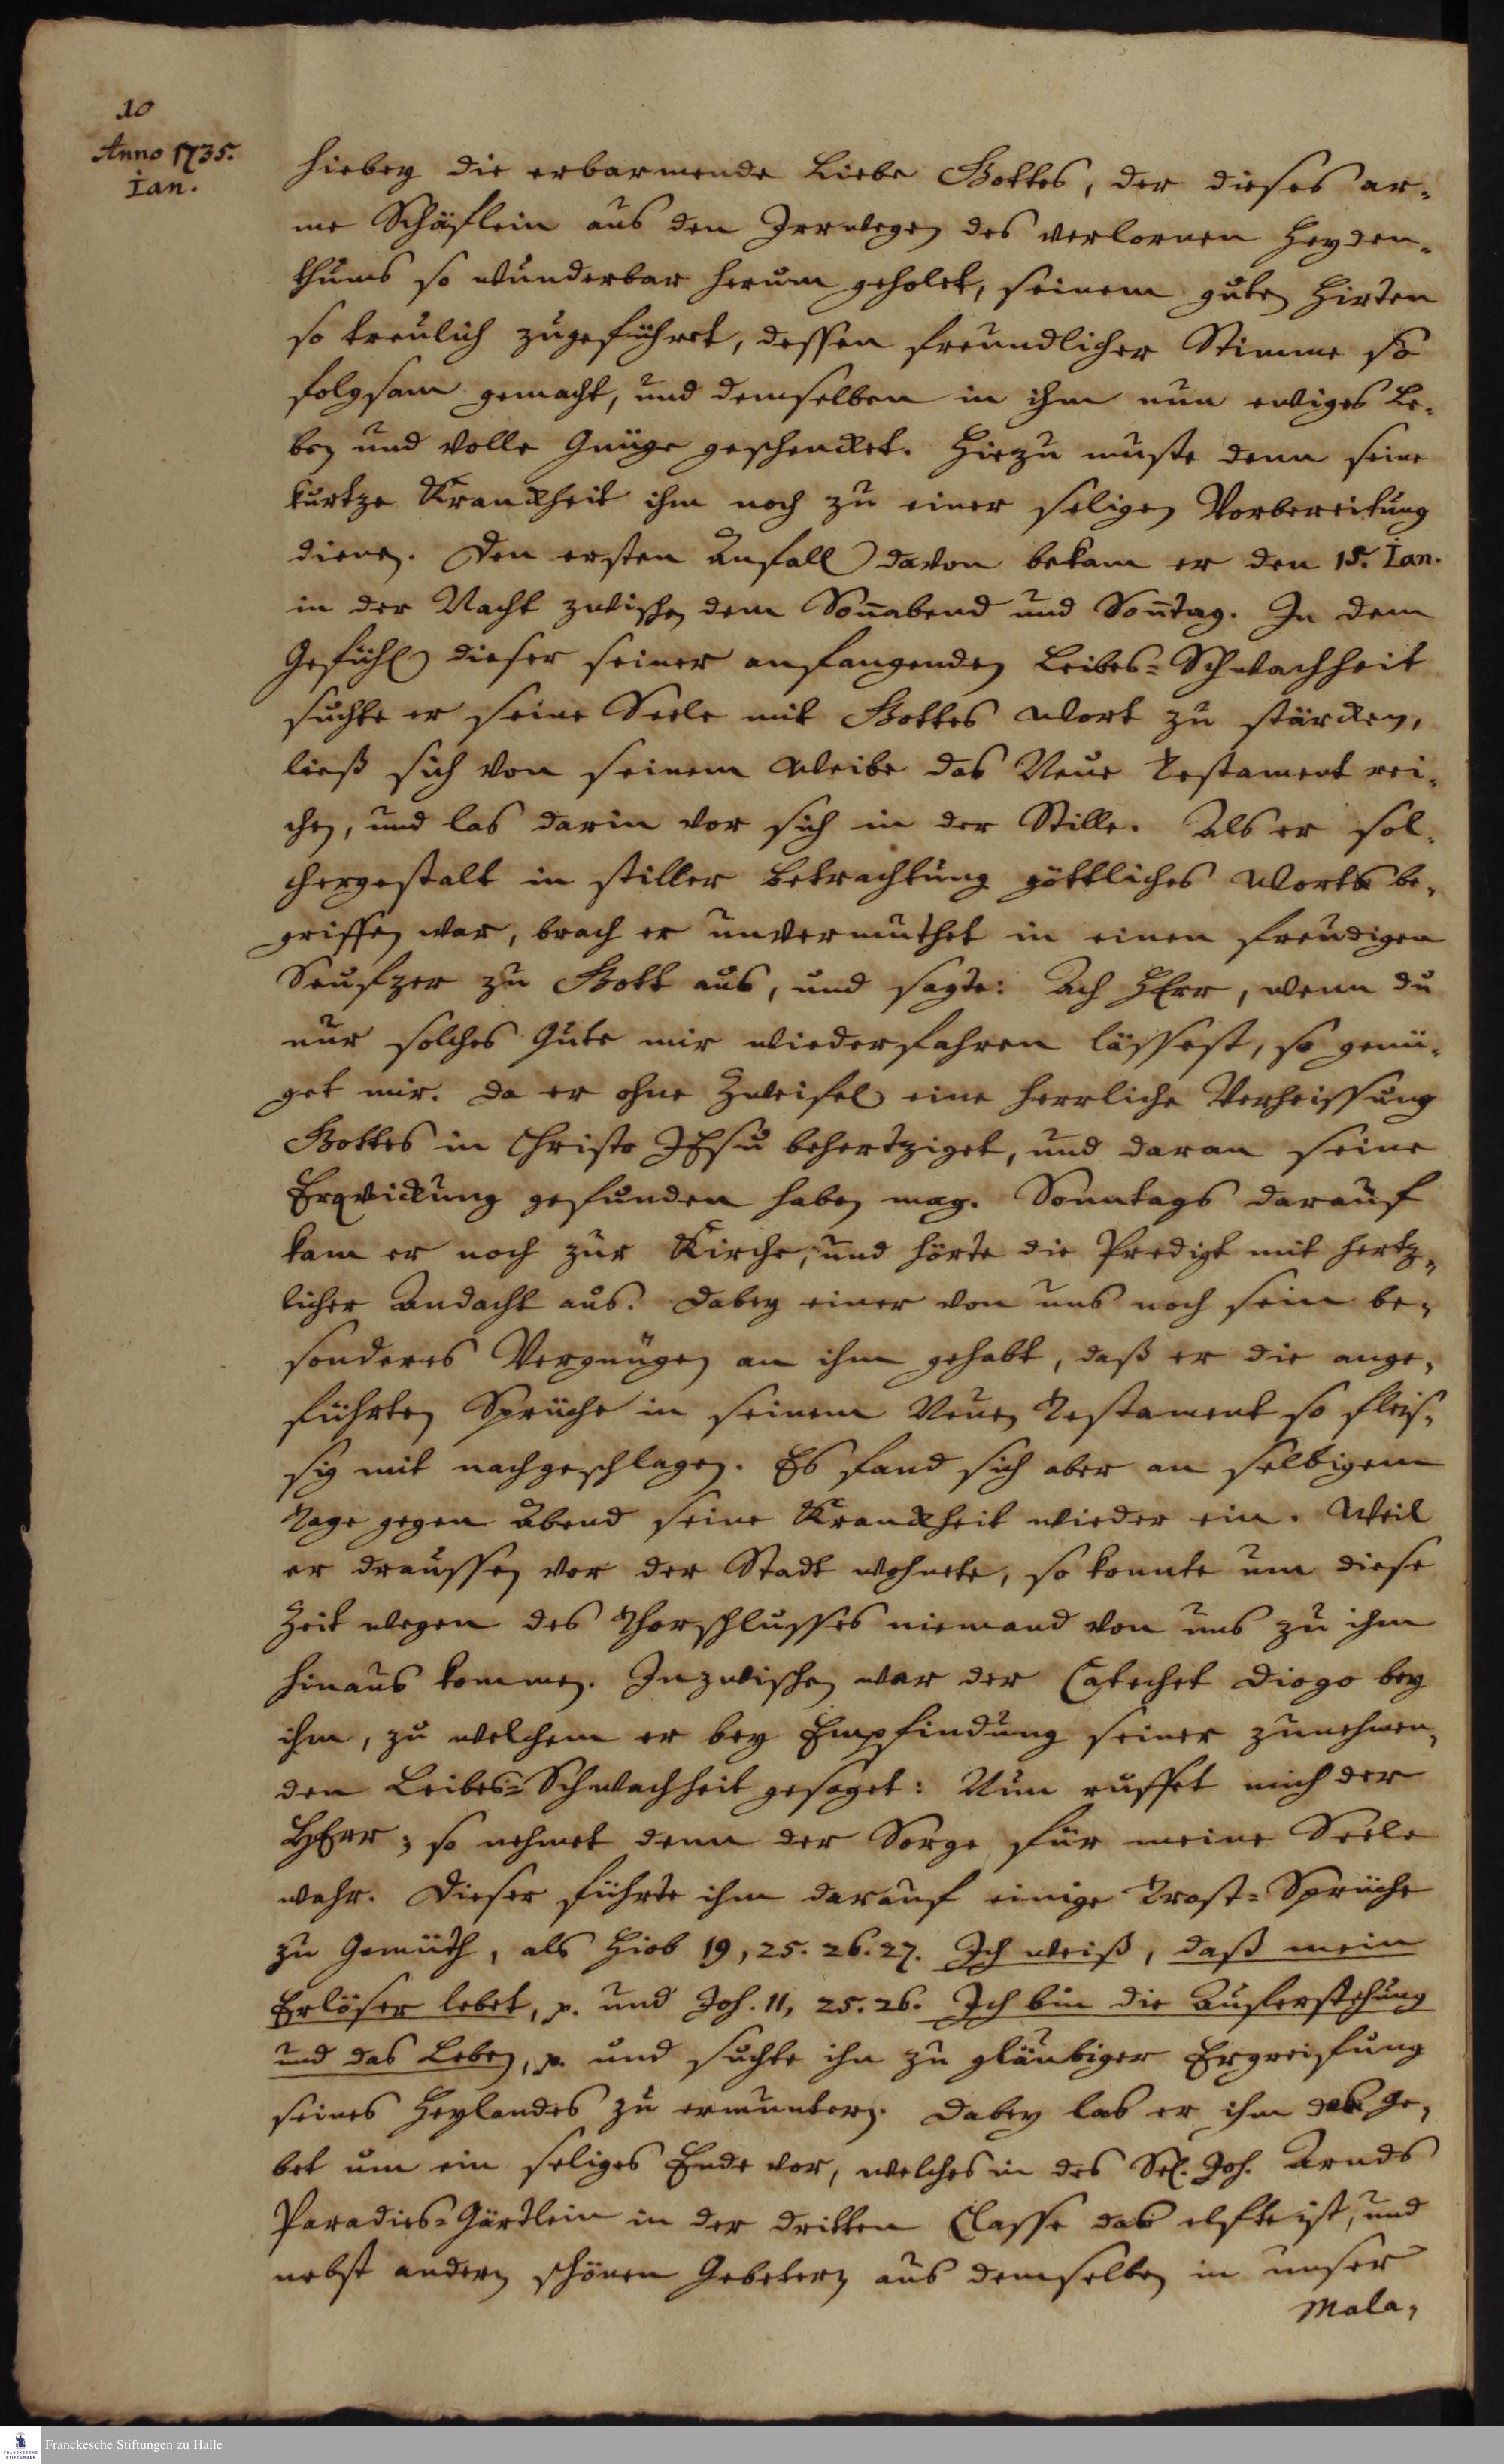 10
Anno 1735.
Jan.
hiebey die erbarmende Liebe Gottes, der dieses ar-
me Schäflein aus den Irrwegen des verlornen Heyden-
thums so wunderbar herum geholet, seinem guten Hirten
so treulich zugeführet, dessen freundlicher Stimme so
folgsam gemacht, und demselben in ihm nun ewiges Le-
ben und volle Gnüge geschencket. Hiezu muste denn seine
kurtze Kranckheit ihm noch zu einer seligen Vorbereitung
dienen. Den ersten Anfall davon bekam er den 15. Jan.
in der Nacht zwischen dem Soñabend und Soñtag. In dem
Gefühl dieser seiner anfangenden Leibes-Schwachheit
suchte er seine Seele mit Gottes Wort zu stärcken,
ließ sich von seinem Weibe das Neue Testament rei-
chen, und las darin vor sich in der Stille. Als er sol-
chergestalt in stiller Betrachtung göttliches Worts be-
griffen war, brach er unvermuthet in einen freudigen
Seufzer zu Gott aus, und sagte: Ach HErr, wenn du
nur solches Gute mir wiederfahren lässest, so genü-
get mir. Da er ohne Zweifel eine herrliche Verheissung
Gottes in Christo JEsu behertziget, und daran seine
Erqvickung gefunden haben mag. Sonntags darauf
kam er noch zur Kirche, und hörte die Predigt mit hertz-
licher Andacht aus. Dabey einer von uns noch sein be-
sonderes Vergnügen an ihm gehabt, daß er die ange-
führten Sprüche in seinem Neuen Testament so fleis-
sig mit nachgeschlagen. Es fand sich aber an selbigem
Tage gegen Abend seine Kranckheit wieder ein. Weil
er draussen vor der Stadt wohnete, so konnte um diese
Zeit wegen des Thorschlusses niemand von uns zu ihm
hinaus kommen. Inzwischen war der Catechet Diogo bey
ihm, zu welchem er bey Empfindung seiner zunehmen-
den Leibes-Schwachheit gesaget: Nun ruffet mich der
HErr; so nehmet denn der Sorge für meine Seele
wahr. Dieser führte ihm darauf einige Trost-Sprüche
zu Gemüth, als Hiob 19, 25. 26. 27. Ich weiß, daß mein
Erlöser lebet, p. und Joh. 11, 25. 26. Ich bin die Auferstehung
und das Leben, p. und suchte ihn zu gläubiger Ergreifung
seines Heylandes zu ermuntern. Dabey las er ihm das Ge-
bet um ein seliges Ende vor, welches in des Sel. Joh. Arnds
Paradies-Gärtlein in der dritten Classe das elfte ist, und
nebst andern schönen Gebetern aus demselben in unser
Mala-
FRANCKESCHE
STIFTUNGEN
Franckesche Stiftungen zu Halle